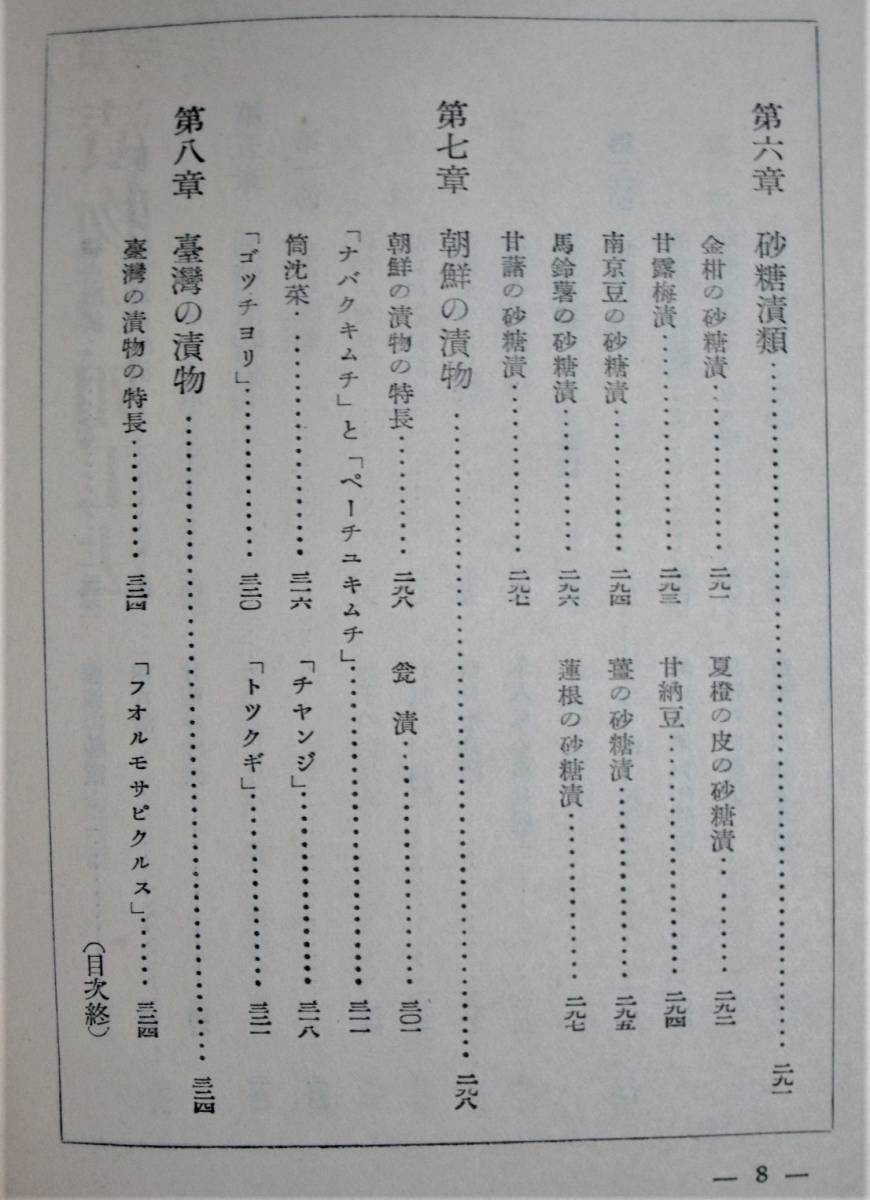 第六章　砂糖漬類……二九一
金柑の砂糖漬……二九一　夏橙の皮の砂糖漬……二九二
甘露梅漬……二九三　甘納豆……二九四
南京豆の砂糖漬……二九四　薑の砂糖漬……二九五
馬鈴薯の砂糖漬……二九六　蓮根の砂糖漬……二九七
甘藷の砂糖漬……二九七
第七章　朝鮮の漬物……二九八
朝鮮の漬物の特長……二九八　瓮漬……三〇一
「ナバクキムチ」と「ペーチユキムチ」……三一一
筒沈菜……三一六　「チヤンジ」……三一八
「ゴツチヨリ」……三二〇　「トツクギ」……三二一
第八章　臺灣の漬物……三二四
臺灣の漬物の特長……三二四　「フオルモサピクルス」……三二四
（目次終）
— 8 —